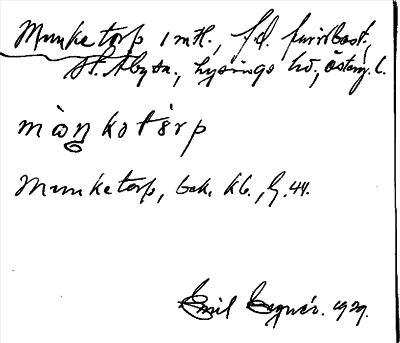 Munketorp 1 mtl., f.d. furirbost.,
St. Åby sn., Lysings hd, Östergl.
mùŋkotærp
Munketorp, Gek. kb., h. 44.
Emil 1929.